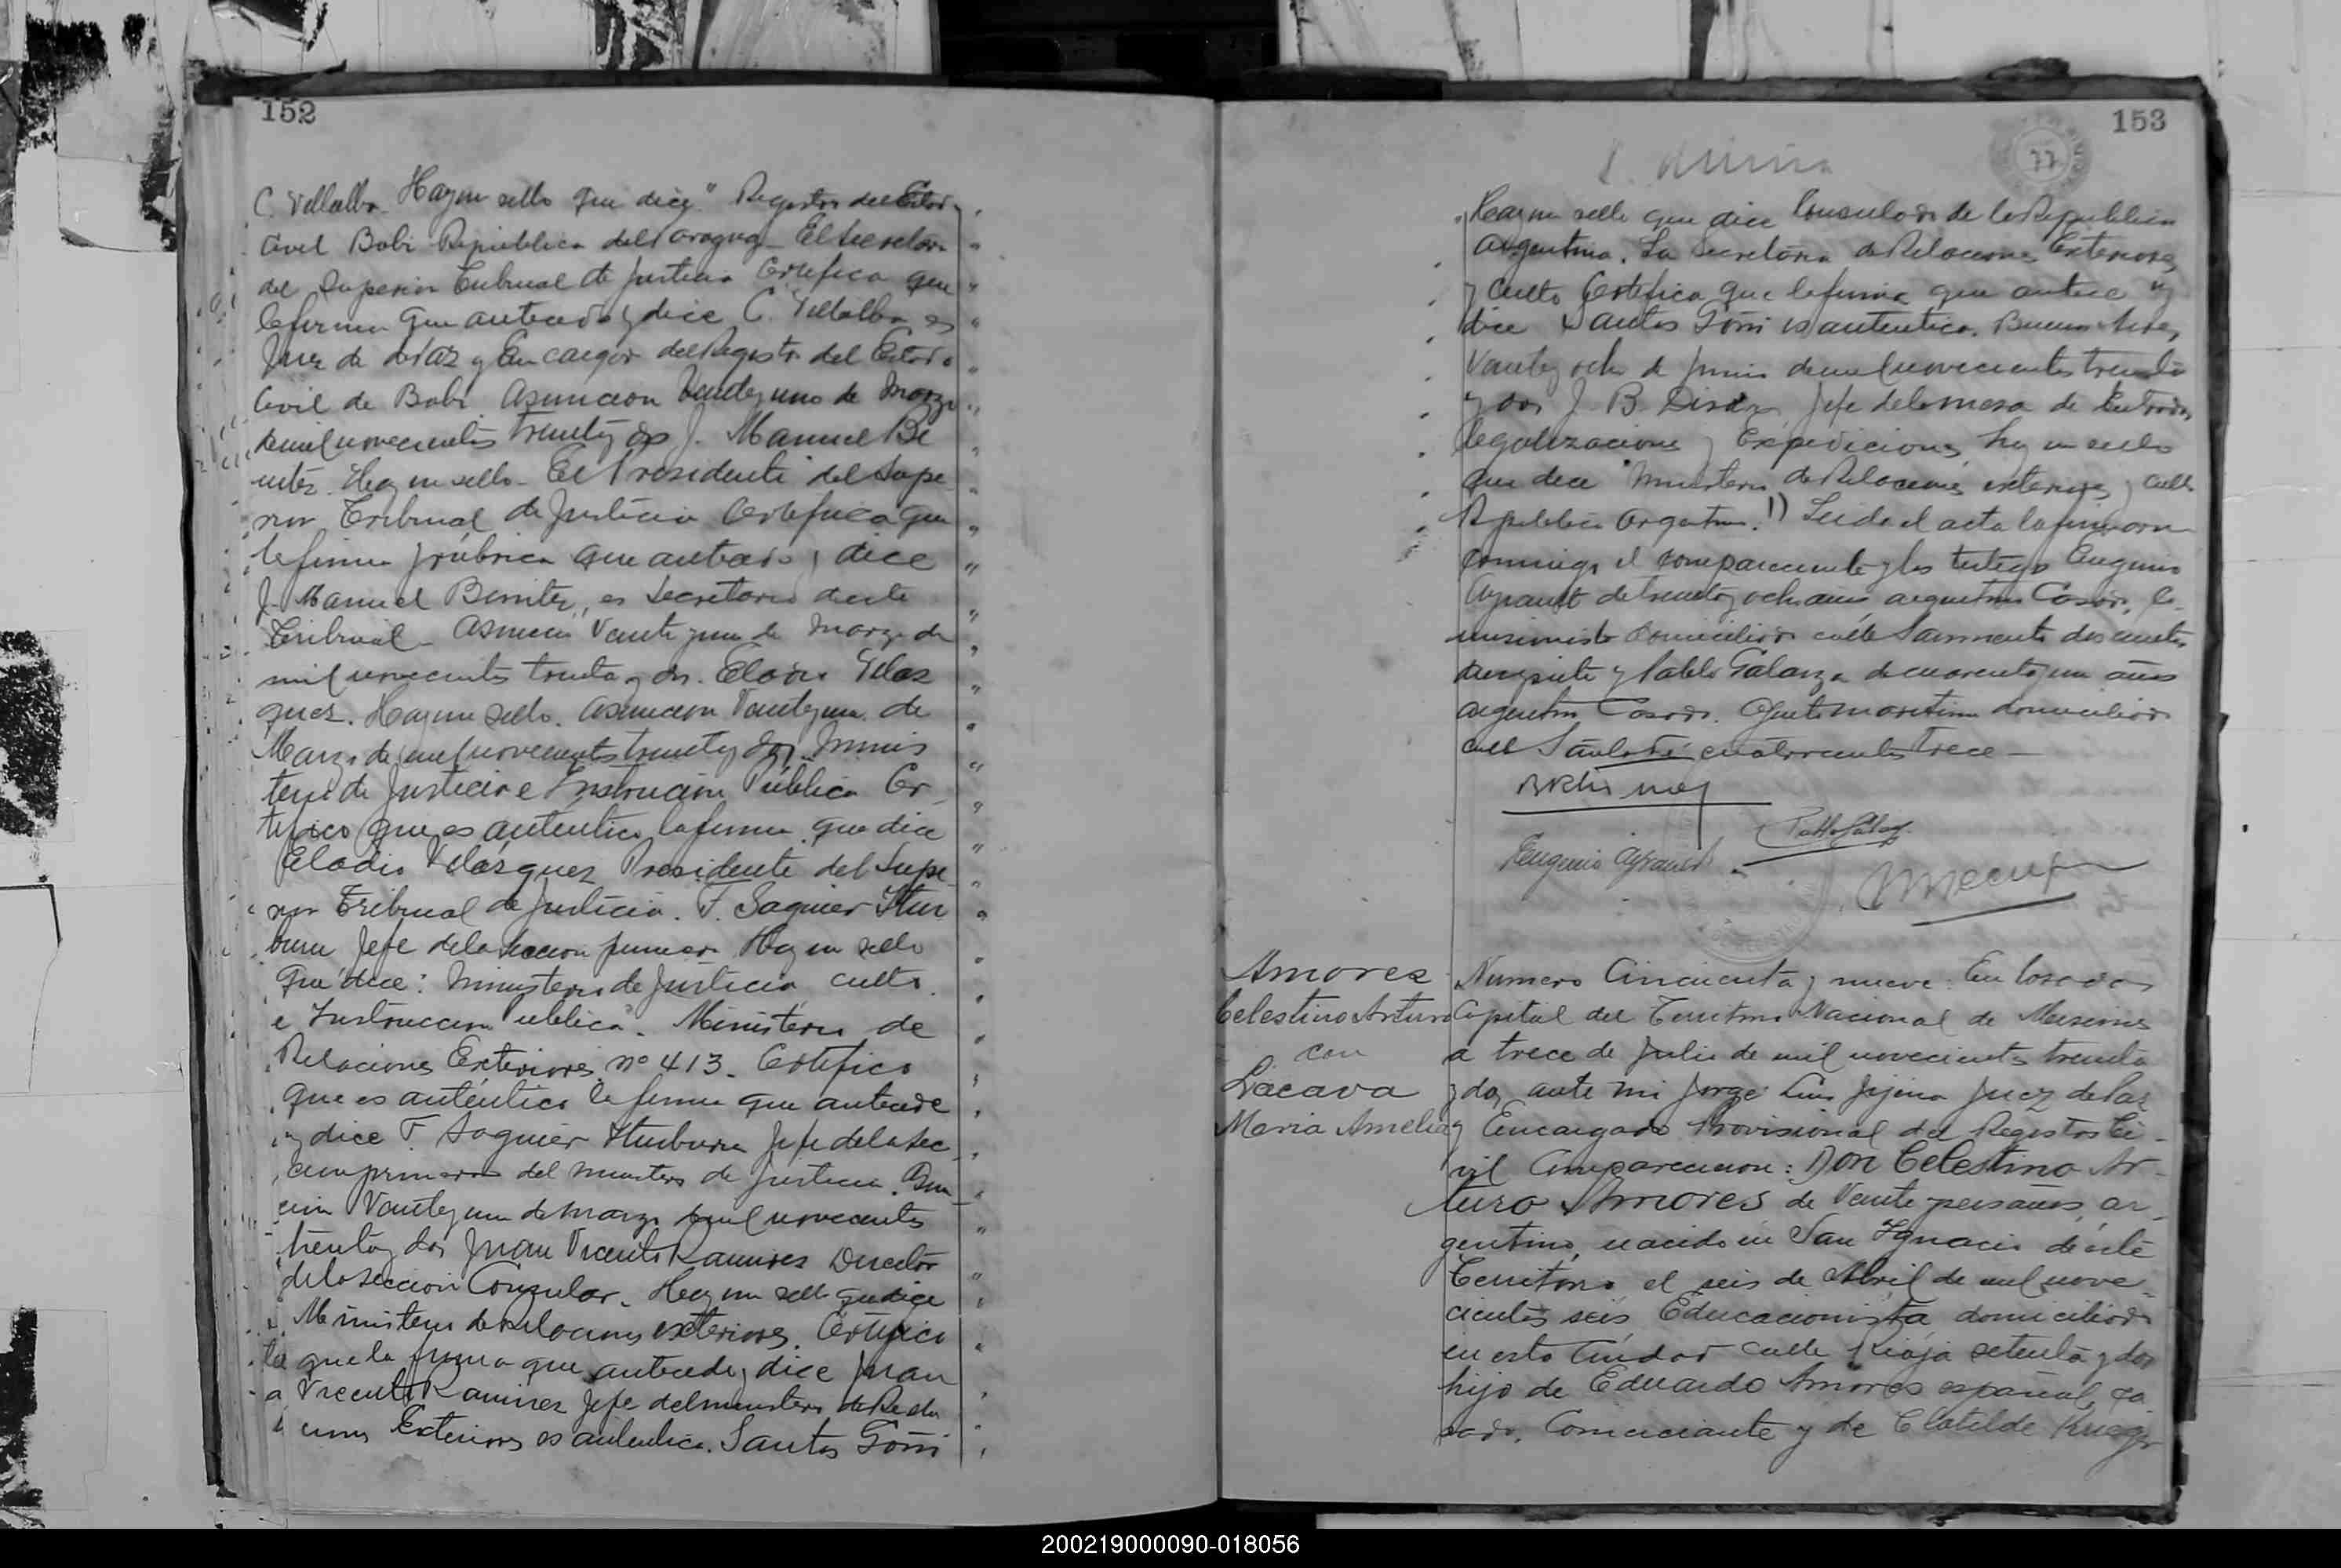 152
C. Villalba. Hay un sello que dice: "Registro del Estado
Civil Bobi República del Paraguay. El Secretario
del Superior Tribunal de Justicia Certifica que
la firma que antecede y dice C. Villalba es
Juez de Paz y Encargado del Registro del Estado
Civil de Bobi Asuncion Veinte y uno de Marzo
de mil novecientos treinta y dos J. Manuel Be
nitez. Hay un sello. El Presidente del Supe
rior Tribunal de Justicia Certifica que
la firma y rúbrica que antecede y dice
J. Manuel Benitez, es Secretario de este
Tribunal. Asuncion Veinte y uno de Marzo de
mil novecientos treinta y dos. Eladio Velaz
quez. Hay un sello. Asuncion Veinte y uno de
Marzo de mil novecientos treinta y dos. Minis
terio de Justicia e Instrucción Pública Cer
tifico que es autentica la firma que dice
Eladio Velázquez Presidente del Supe
rior Tribunal de Justicia. F. Saguier Itur
buru Jefe de la Sección primera Hay un sello
que dice: Ministerio de Justicia culto
e Instruccion Publica". Ministerio de
Relaciones Exteriores nº 413. Certifico
que es auténtica la firma que antecede
y dice F. Saguier Iturburu Jefe de la Sec
cion primera del Ministerio de Justicia. Asun
cion Veinte y uno de Marzo de mil novecientos
treinta y dos Juan Vicente Ramirez Director
de la Seccion Consular. Hay un sello que dice
Ministerio de Relaciones exteriores. Certifico
que la firma que antecede y dice Juan
Vicente Ramirez Jefe del Ministerio de Rela
ciones Exteriores es autentica. Santos Goñi
153
77
Hay un sello que dice Consulado de la Republica
Argentina. La Secretaria de Relaciones Exteriores
y Culto Certifica que la firma que antecede y
dice Santos Goñi es autentica. Buenos Aires,
Veinte y ocho de Junio de mil novecientos treinta
y dos J. B. Diaz Jefe de la mesa de Entradas,
legalizaciones y Expediciones, hay un sello
que dice "Ministerio de Relaciones exteriores y culto
Republica Argentina." Leida el acta la firmaron
conmigo el compareciente y los testigos Eugenio
Ayrault de treinta y ocho años, argentino Casado, Co
misionista domiciliado calle Sarmiento doscientos
y Pablo Galarza de cuarenta y un años
argentino Casado. Agente maritimo domiciliado
calle Santa Fé cuatrocientos trece
Pablo Galarza
Eugenio Ayrault
Amores
Celestino Arturo
con
Lacava
Maria Amelia
Numero Cincuenta y nueve: En Posadas
Capital del Territorio Nacional de Misiones
a trece de Julio de mil novecientos treinta
y dos, ante mi Jorge Luis Jijena Juez de Paz
y Encargado Provisional del Registro Ci
vil Comparecieron: Don Celestino Ar
turo Amores de Veinte y seis años, ar
gentino, nacido en San Ignacio de este
Territorio el seis de Abril de mil nove
cientos seis Educacionista domiciliado
en esta Ciudad calle Rioja setenta y dos
hijo de Eduardo Amores español, ca
sado, Comerciante y de Clotilde Krieger
200219000090-018056